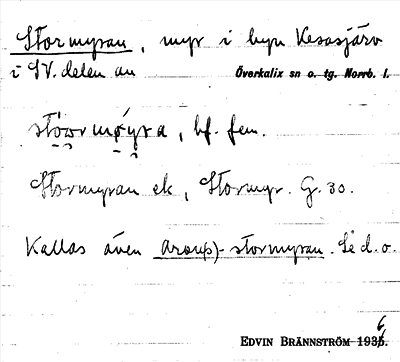 Stormyran, myr i byn Kesasjärv
i SV. delen av Överkalix sn o. tg. Norrb. l.
stówrmǿyra, bf. fem.
Stormyran ek, Stormyr. G. 30.
Kallas även -stormyran. Se d. o.
EDVIN BRÄNNSTRÖM 1936.